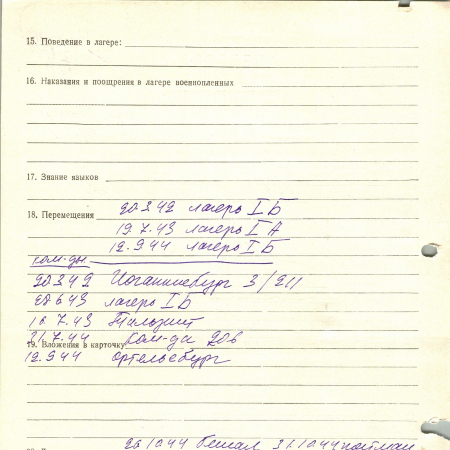 15. Поведение в лагере:
16. Наказания и поощрения в лагере военнопленных
17. Знание языков
18. Перемещения 20 3 42 лагерь I Б
19.7.43 лагерь I А
12.9 44 лагерь I Б
ком-ды
20 3 42 Иоганнисбург 3/211
лагерь I Б
7.43 Тильзит
21.7.44 ком-да 206
19. Вложения в карточку
12.9 44 Ортельсбург
26 10 44 бежал 31 10 44 пойман